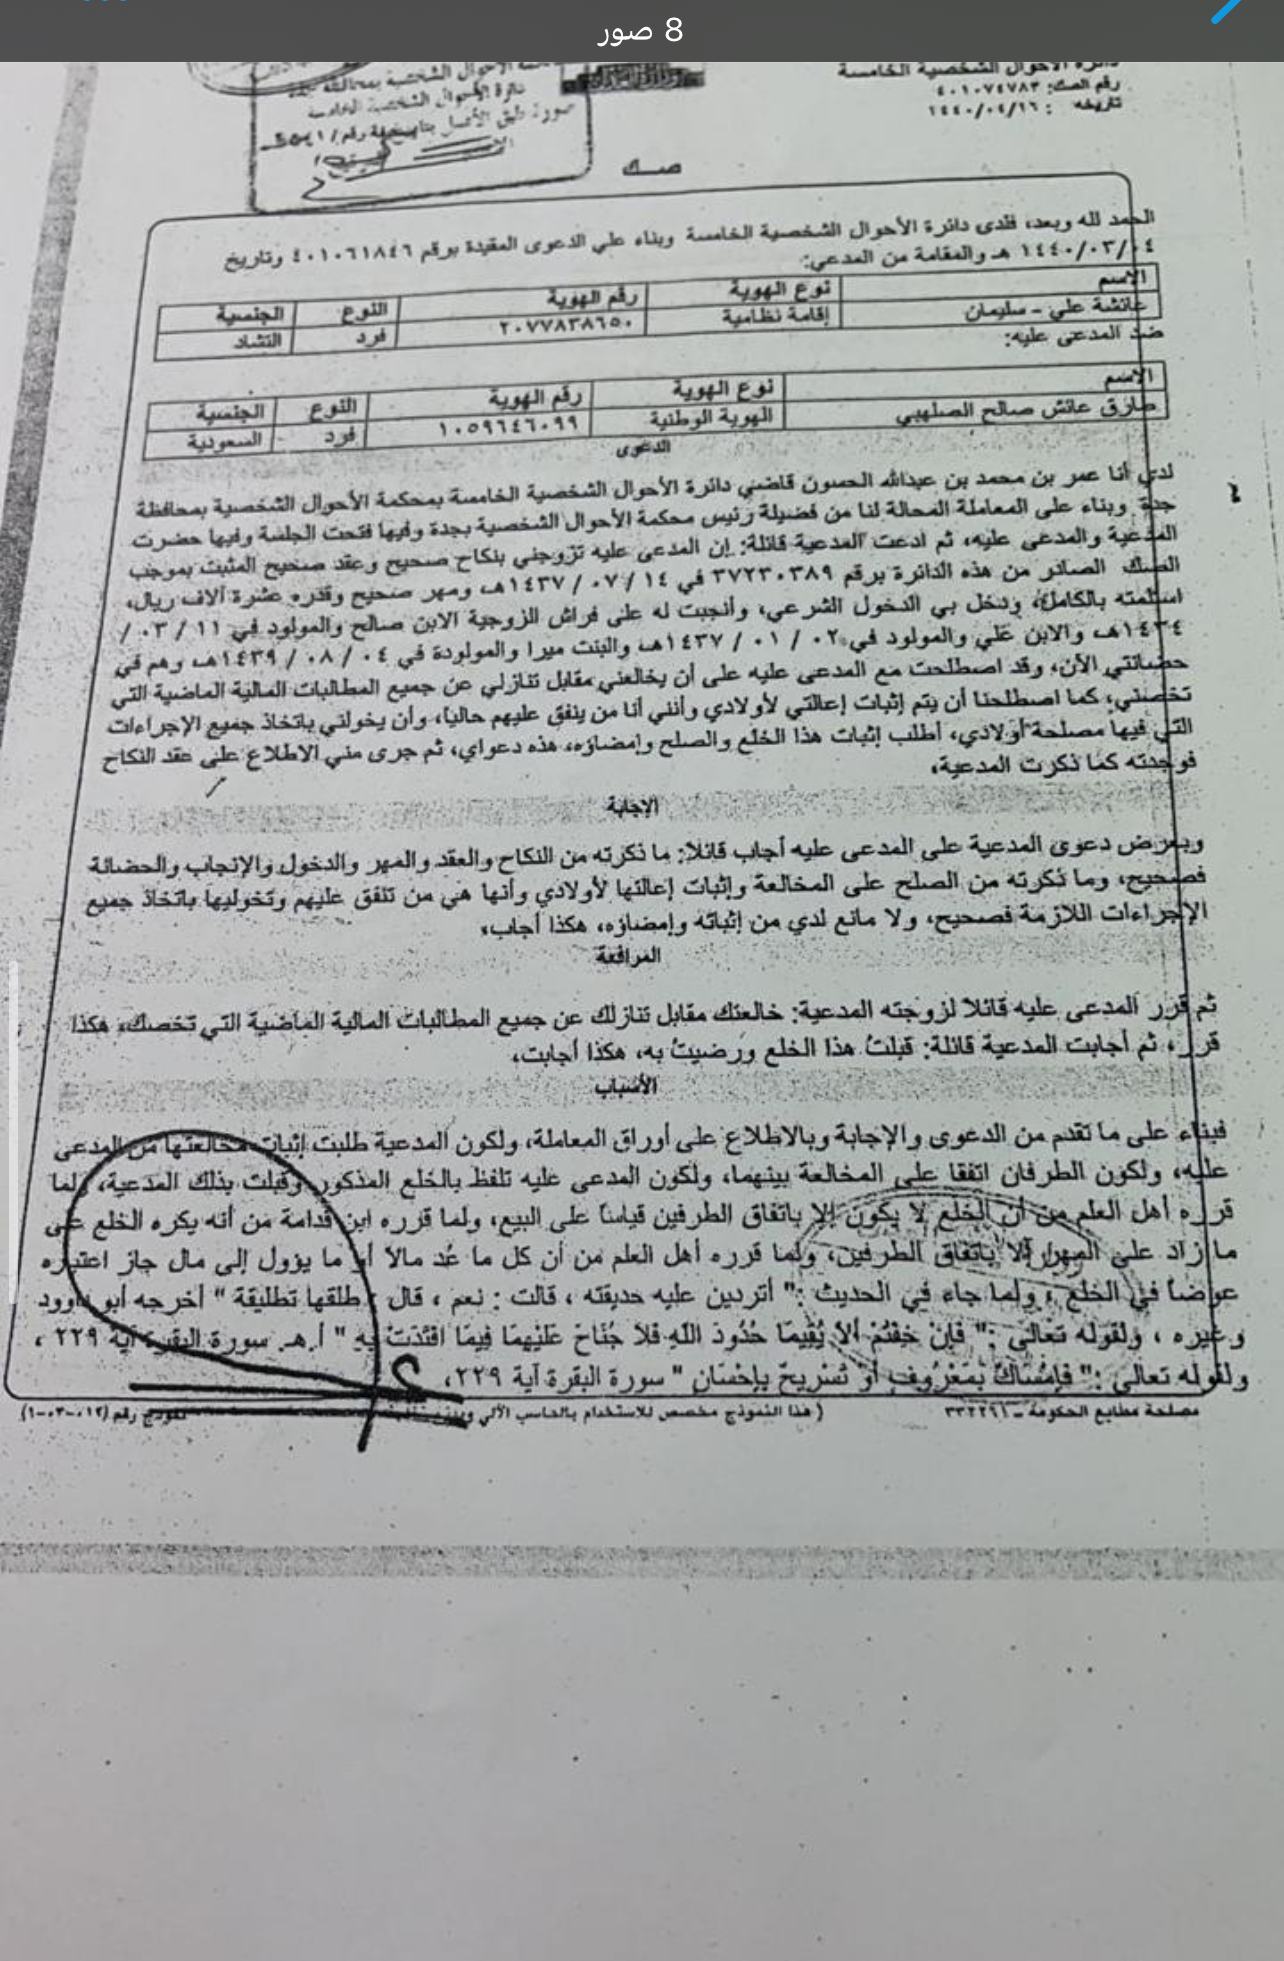 8 صور
دائرة الأحوال الشخصية الخامسة
رقم الصك: ٤٠١٠٧٤٧٨٣
تاريخه :
دائرة الأحوال الشخصية الخامسة
صورة طبق الأصل
صك
الحمد لله وبعد، فلدى دائرة الأحوال الشخصية الخامسة وبناء على الدعوى المقيدة برقم ٤٠١٠٦١٨٤٦ وتاريخ
١٤٤٠/٠٣/٠٤ هـ والمقامة من المدعي:
الاسم نوع الهوية رقم الهوية النوع الجنسية
عائشة علي - سليمان إقامة نظامية ٢٠٧٧٨٣٨٦٥٠ فرد التشاد
ضد المدعى عليه:
الاسم نوع الهوية رقم الهوية النوع الجنسية
طارق عائش صالح الصلهبي الهوية الوطنية ١٠٥٩٦٤٦٠٩٩ فرد السعودية
الدعوى
لدي أنا عمر بن محمد بن عبدالله الحسون قاضي دائرة الأحوال الشخصية الخامسة بمحكمة الأحوال الشخصية بمحافظة
جدة وبناء على المعاملة المحالة لنا من فضيلة رئيس محكمة الأحوال الشخصية بجدة وفيها فتحت الجلسة وفيها حضرت
المدعية والمدعى عليه، ثم ادعت المدعية قائلة: إن المدعى عليه تزوجني بنكاح صحيح وعقد صحيح المثبت بموجب
الصك الصادر من هذه الدائرة برقم ٣٧٢٣٠٣٨٩ في ١٤ / ٠٧ / ١٤٣٧هـ، ومهر صحيح وقدره عشرة آلاف ريال،
استلمته بالكامل، ودخل بي الدخول الشرعي، وأنجبت له على فراش الزوجية الابن صالح والمولود في ١١ / ٠٣ /
١٤٣٤هـ، والابن علي والمولود في ٠٢ / ٠١ / ١٤٣٧هـ، والبنت ميرا والمولودة في ٠٤ / ٠٨ / ١٤٣٩هـ، وهم في
حضانتي الآن، وقد اصطلحت مع المدعى عليه على أن يخالعني مقابل تنازلي عن جميع المطالبات المالية الماضية التي
تخصني؛ كما اصطلحنا أن يتم إثبات إعالتي لأولادي وأنني أنا من ينفق عليهم حاليا، وأن يخولني باتخاذ جميع الإجراءات
التي فيها مصلحة أولادي، أطلب إثبات هذا الخلع والصلح وإمضاؤه، هذه دعواي، ثم جرى مني الاطلاع على عقد النكاح
فوجدته كما ذكرت المدعية،
الإجابة
وبعرض دعوى المدعية على المدعى عليه أجاب قائلا: ما ذكرته من النكاح والعقد والمهر والدخول والإنجاب والحضانة
فصحيح، وما ذكرته من الصلح على المخالعة وإثبات إعالتها لأولادي وأنها هي من تنفق عليهم وتخوليها باتخاذ جميع
الإجراءات اللازمة فصحيح، ولا مانع لدي من إثباته وإمضاؤه، هكذا أجاب،
المرافعة
ثم قرر المدعى عليه قائلا لزوجته المدعية: خالعتك مقابل تنازلك عن جميع المطالبات المالية الماضية التي تخصك، هكذا
قرر، ثم أجابت المدعية قائلة: قبلتُ هذا الخلع ورضيتُ به، هكذا أجابت،
الأسباب
فبناء على ما تقدم من الدعوى والإجابة وبالاطلاع على أوراق المعاملة، ولكون المدعية طلبت إثبات مخالعتها من المدعى
عليه، ولكون الطرفان اتفقا على المخالعة بينهما، ولكون المدعى عليه تلفظ بالخلع المذكور وقبلت بذلك المدعية، ولما
قرره أهل العلم من أن الخلع لا يكون إلا باتفاق الطرفين قياساً على البيع، ولما قرره ابن قدامة من أنه يكره الخلع على
ما زاد على المهر إلا باتفاق الطرفين، ولما قرره أهل العلم من أن كل ما عُد مالاً أو ما يؤول إلى مال جاز اعتباره
عوضاً في الخلع ، ولما جاء في الحديث :" أتردين عليه حديقته ، قالت : نعم ، قال : طلقها تطليقة " أخرجه أبو داوود
وغيره ، ولقوله تعالى :" فَإِنْ خِفْتُمْ أَلَّا يُقِيمَا حُدُودَ اللَّهِ فَلَا جُنَاحَ عَلَيْهِمَا فِيمَا افْتَدَتْ بِهِ " أ.هـ. سورة البقرة آية ٢٢٩ ،
ولقوله تعالى :" فَإِمْسَاكٌ بِمَعْرُوفٍ أَوْ تَسْرِيحٌ بِإِحْسَانٍ " سورة البقرة آية ٢٢٩،
مصلحة مطابع الحكومة - ( هذا النموذج مخصص للاستخدام بالحاسب الآلي نموذج رقم (١٢-٠٣-٠١)